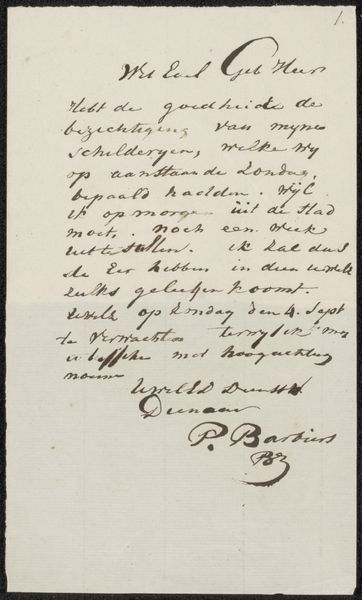 1.
Wel Ed Geb Heer
Hebt de goedheid de
bezichtiging van myne
schilderyen, welke wy
op aanstaande Zondag,
bepaald hadden. Wyl
ik op morgen uit de Stad
moet, noch een week
uit te stellen. ik zal dus
de Eer hebben in dien
zulks gelegen koomt.
op Zondag den 4 Sept
te verwachten terwyl ik my
met hoogachting
noeme
Dienaar
P. Barbiers
Pz